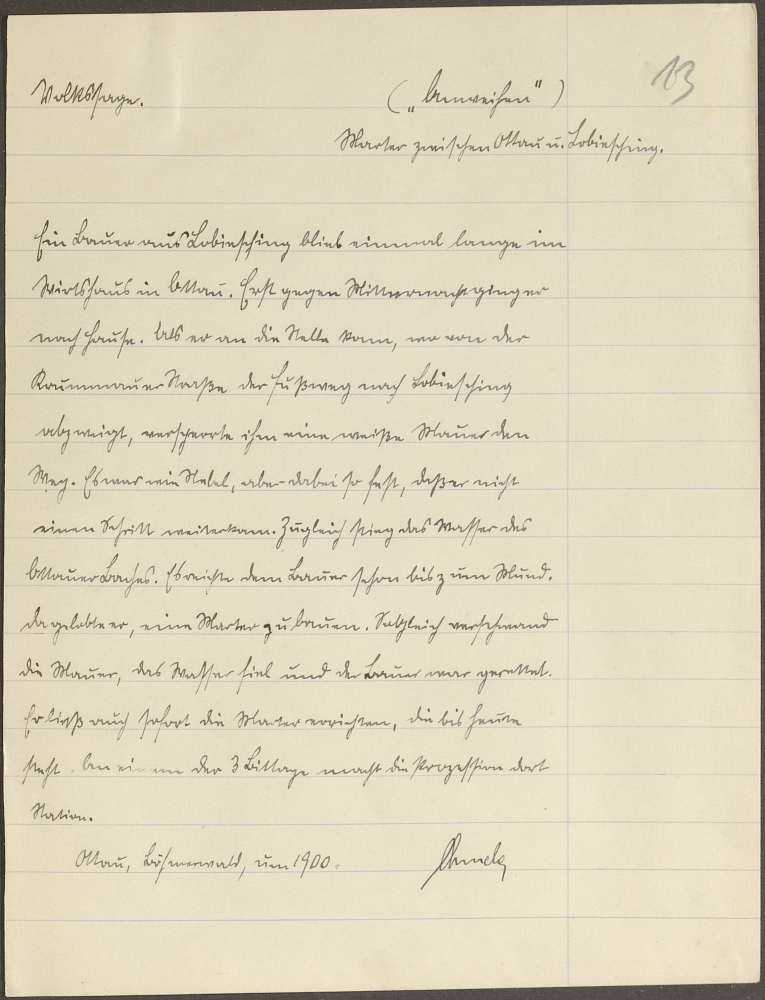 13
Volkssage. („Anweihen")
Marter zwischen Ottau u. Lobiesching.
Ein Bauer aus Lobiesching blieb einmal lange im
Wirtshaus in Ottau. Erst gegen Mitternacht ging er
nach Hause. Als er an die Stelle kam, wo von der
Krummauer Straße der Fußweg nach Lobiesching
abzweigt, versperrte ihm eine weiße Mauer den
Weg. Es war wie Nebel, aber dabei so fest, daß er nicht
einen Schritt weiterkam. Zugleich stieg das Wasser des
Ottauer Baches. Es reichte dem Bauer schon bis zum Mund.
Da gelobte er, eine Marter zu bauen. Sogleich verschwand
die Mauer, das Wasser fiel und der Bauer war gerettet.
Er ließ auch sofort die Marter errichten, die bis heute
steht. An einem der 3 Bittage macht die Prozession dort
Station.
Ottau, Böhmerwald, um 1900.